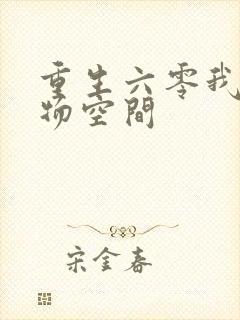 重生六零我
物空間
宋金春